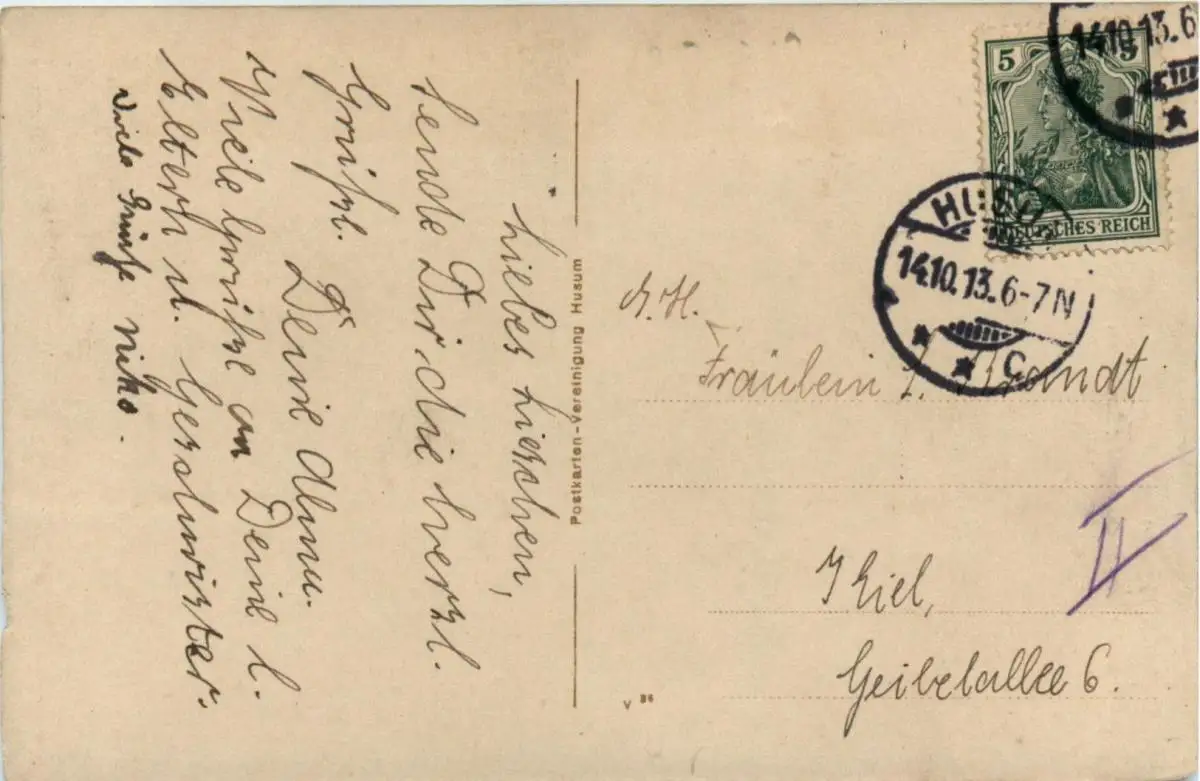 Liebes Lieschen,
sende Dir die herzl.
Grüße.
Deine Alma.
Viele Grüße an Deine l.
Eltern u. Geschwister.
Viele Grüße
Postkarten-Vereinigung Husum
V 86
5 5
DEUTSCHES REICH
14.10.13.6
HUSU
14.10.13.6-7N
* * C
Fräulein L. Brandt
Kiel,
Geibelallee 6.
II